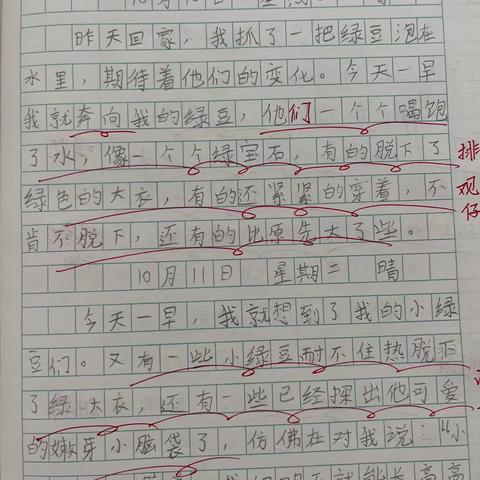 昨天回家，我抓了一把绿豆泡在
水里，期待着他们的变化。今天一早
我就奔向我的绿豆，他们一个个喝饱
了水，像一个个绿宝石，有的脱下了
绿色的大衣，有的还紧紧的穿着，不
肯不脱下，还有的比原先大了些。
排
观
仔
10月11日 星期二 晴
今天一早，我就想到了我的小绿
豆们。又有一些小绿豆耐不住热脱下
了绿大衣，还有一些已经探出他可爱
的嫩芽小脑袋了，仿佛在对我说："小